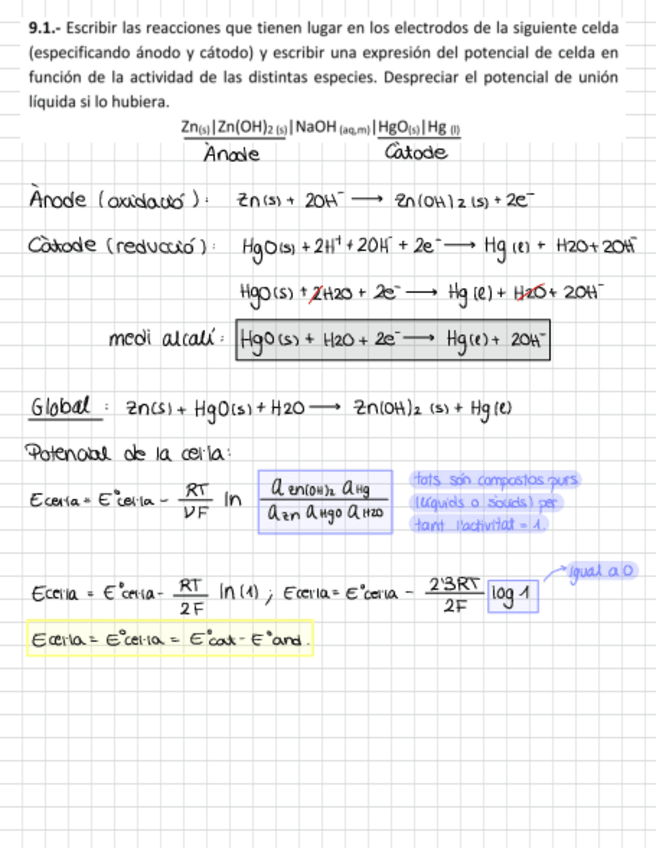 9.1.- Escribir las reacciones que tienen lugar en los electrodos de la siguiente celda
(especificando ánodo y cátodo) y escribir una expresión del potencial de celda en
función de la actividad de las distintas especies. Despreciar el potencial de unión
líquida si lo hubiera.
Zn(s)|Zn(OH)2 (s)|NaOH (aq,m)|HgO(s)|Hg (l)
Ànode Càtode
Ànode (oxidació): Zn(s) + 2OH⁻ ⟶ Zn(OH)2(s) + 2e⁻
Càtode (reducció): HgO(s) + 2H⁺ + 2OH⁻ + 2e⁻ ⟶ Hg(l) + H2O + 2OH⁻
HgO(s) + 2H2O + 2e⁻ ⟶ Hg(l) + H2O + 2OH⁻
medi alcalí: HgO(s) + H2O + 2e⁻ ⟶ Hg(l) + 2OH⁻
Global: Zn(s) + HgO(s) + H2O ⟶ Zn(OH)2 (s) + Hg(l)
Potencial de la cel·la:
Ecel·la = E°cel·la - RT/νF ln (a Zn(OH)2 a Hg)/(a Zn a HgO a H2O)
tots són compostos purs
(líquids o sòlids) per
tant l'activitat = 1.
Ecel·la = E°cel·la - RT/2F ln(1); Ecel·la = E°cel·la - 2'3RT/2F log 1
igual a 0
Ecel·la = E°cel·la = E°cat - E°and.